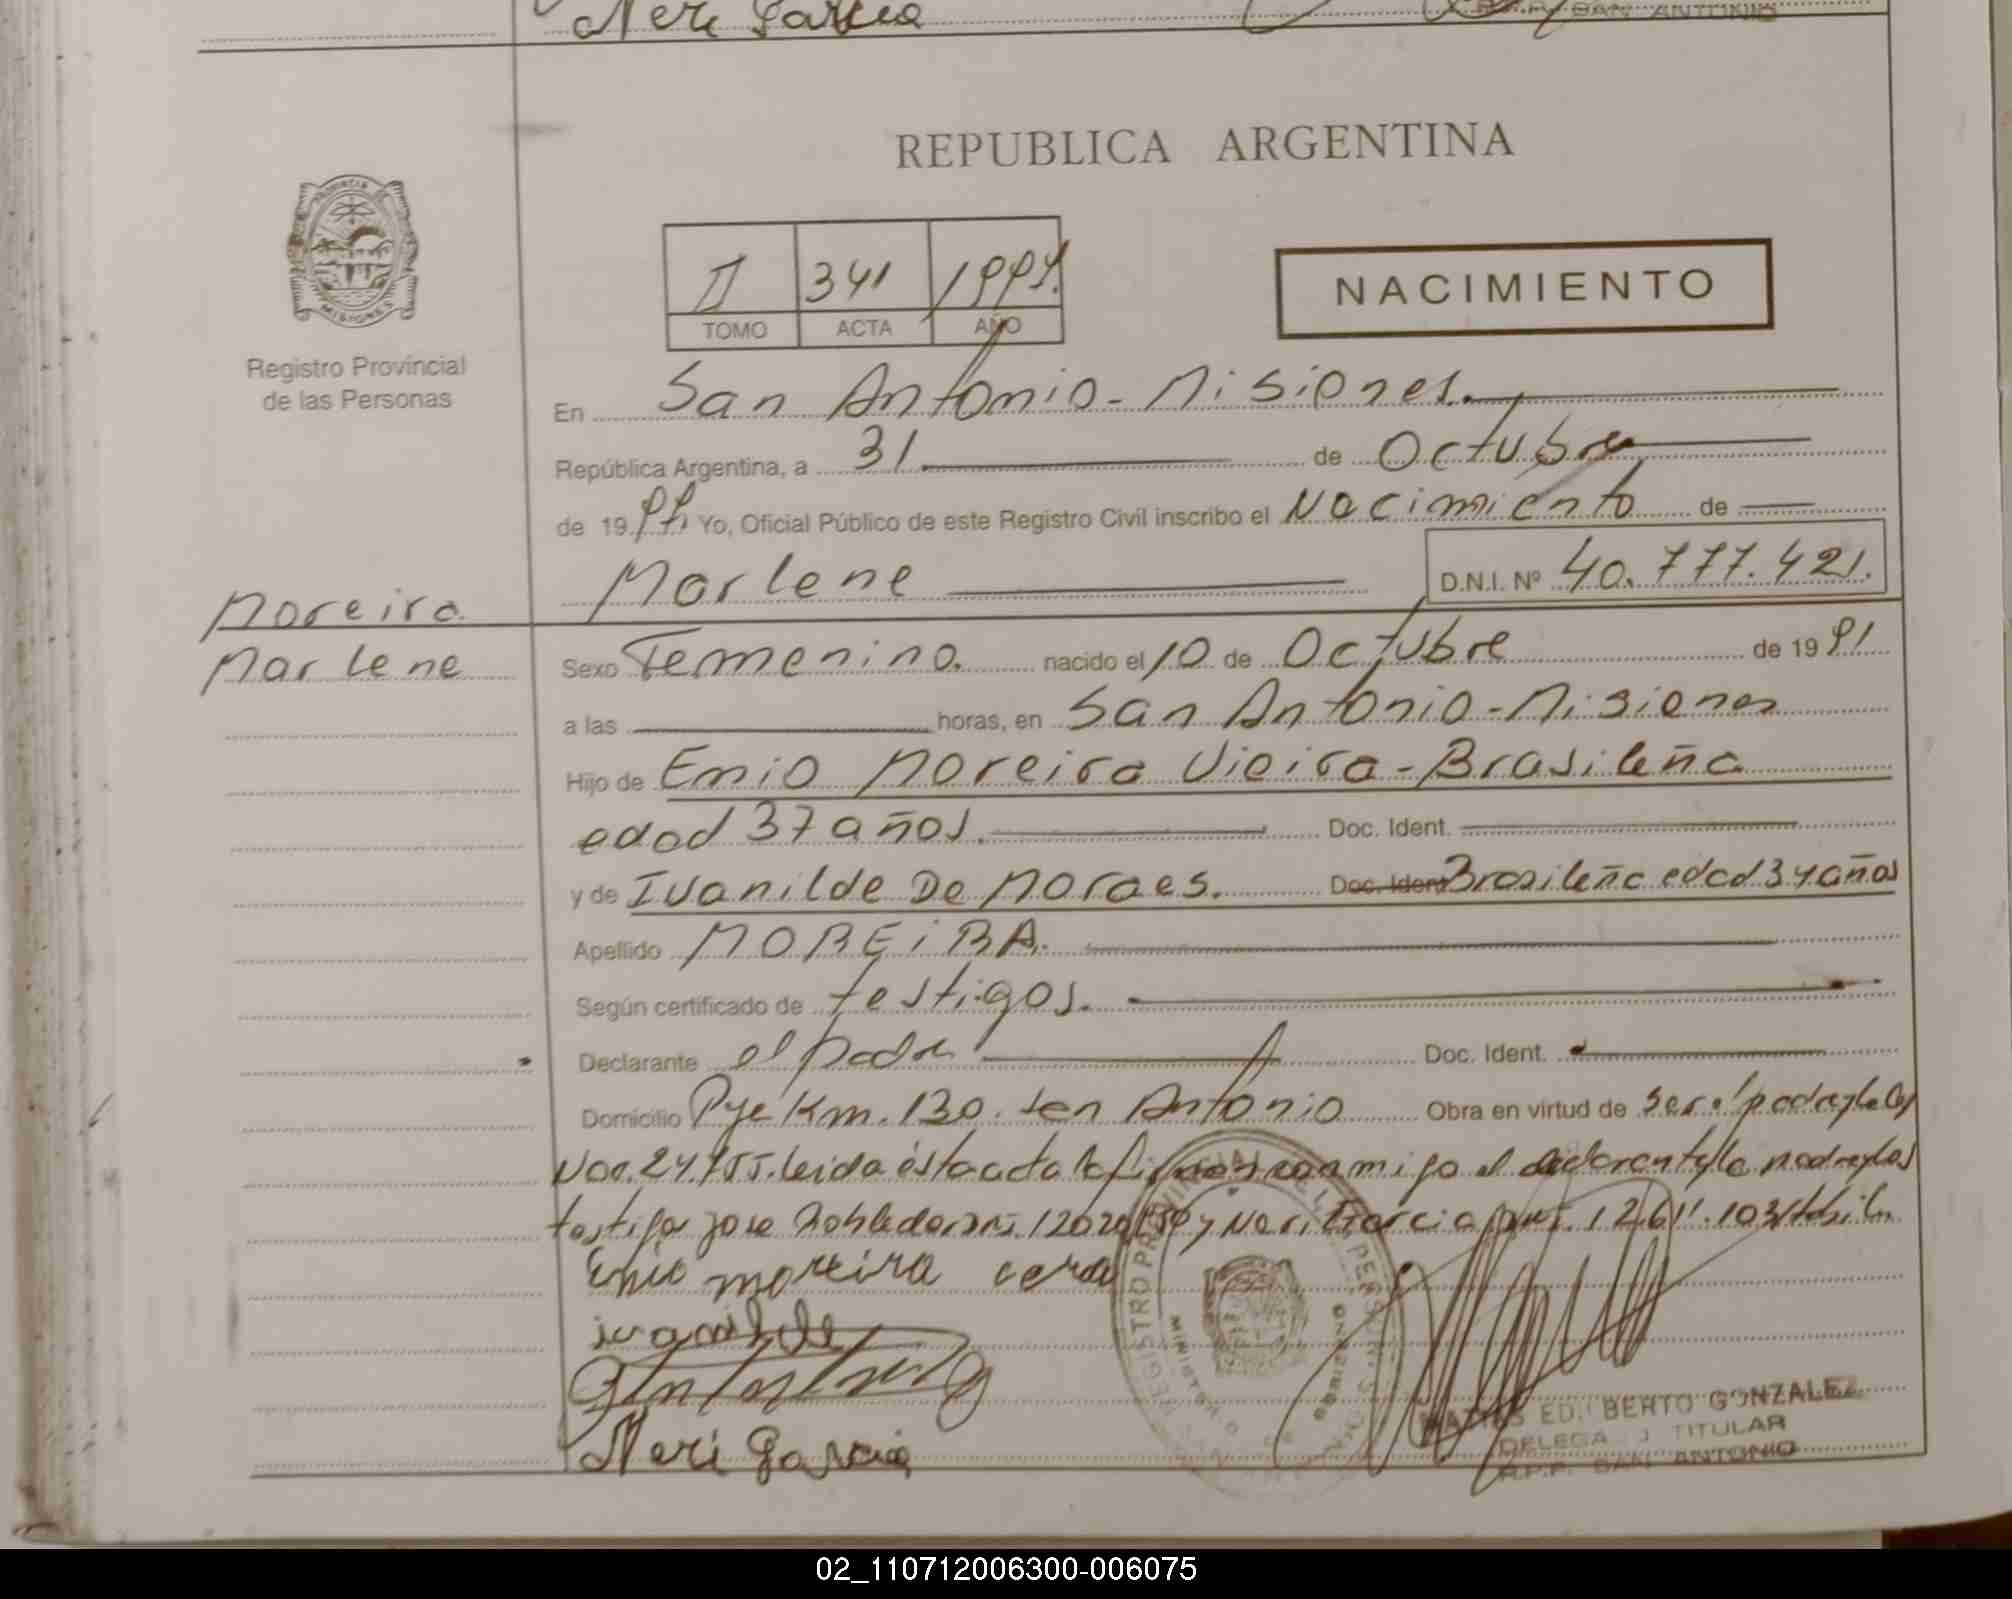 Neri Garcia
R.P.P. SAN ANTONIO
REPUBLICA ARGENTINA
II 341 1997.
TOMO ACTA AÑO
NACIMIENTO
PROVINCIA DE MISIONES
Registro Provincial
de las Personas
En San Antonio - Misiones.
República Argentina, a 31 de Octubre
de 19 Yo, Oficial Público de este Registro Civil inscribo el Nacimiento de
Marlene D.N.I. Nº 40.777.421.
Moreira
Marlene
Sexo Femenino. nacido el 10 de Octubre de 19 91
a las horas, en San Antonio - Misiones
Hijo de Enio Moreira Vieira - Brasileña
edad 37 años. Doc. Ident.
y de Ivanilde De Moraes. Doc. Ident Brasileña edad 34 años
Apellido MOREIRA.
Según certificado de testigos.
Declarante el padre Doc. Ident.
Domicilio Pje Km. 130. San Antonio Obra en virtud de ser el padre y la ley
Nac. 24.755. leida ésta acta la firman conmigo el declarante, la madre y los
testigos Jose Robledo y Neri Garcia
Enio moreira
ivanilde
Neri Garcia
REGISTRO PROVINCIAL DE LAS PERSONAS
MINISTERIO DE GOBIERNO
MATIAS EDILBERTO GONZALEZ
DELEGADO TITULAR
R.P.P. SAN ANTONIO
02_110712006300-006075